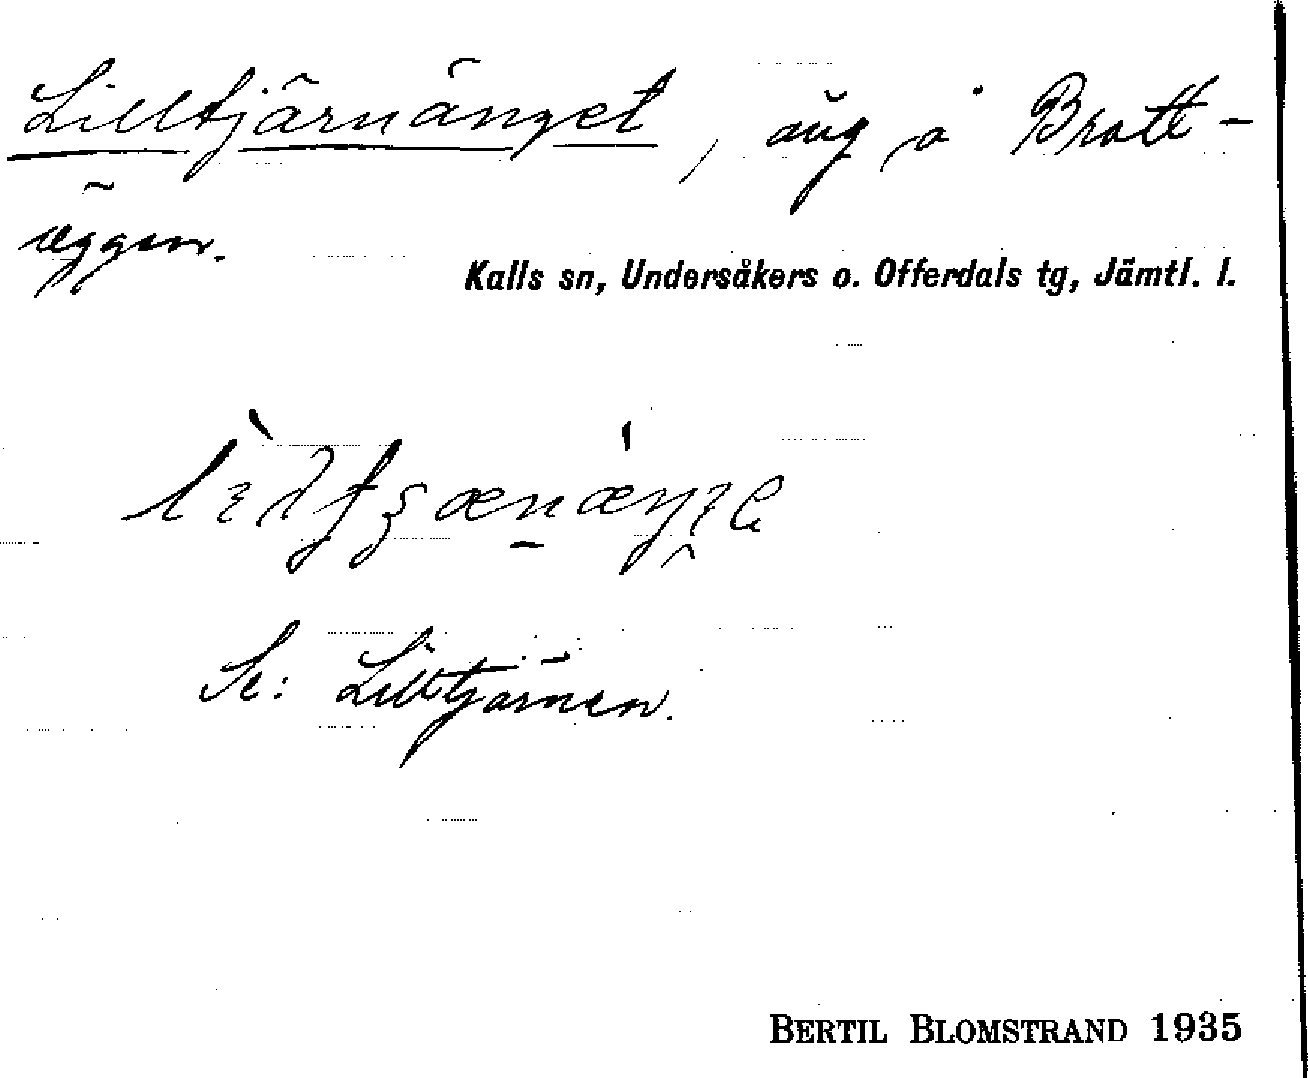 Lilltjärnänget, äng å Bratt-
äggen.
Kalls sn, Undersåkers o. Offerdals tg, Jämtl. l.
Se: Lilltjärnen.
BERTIL BLOMSTRAND 1935